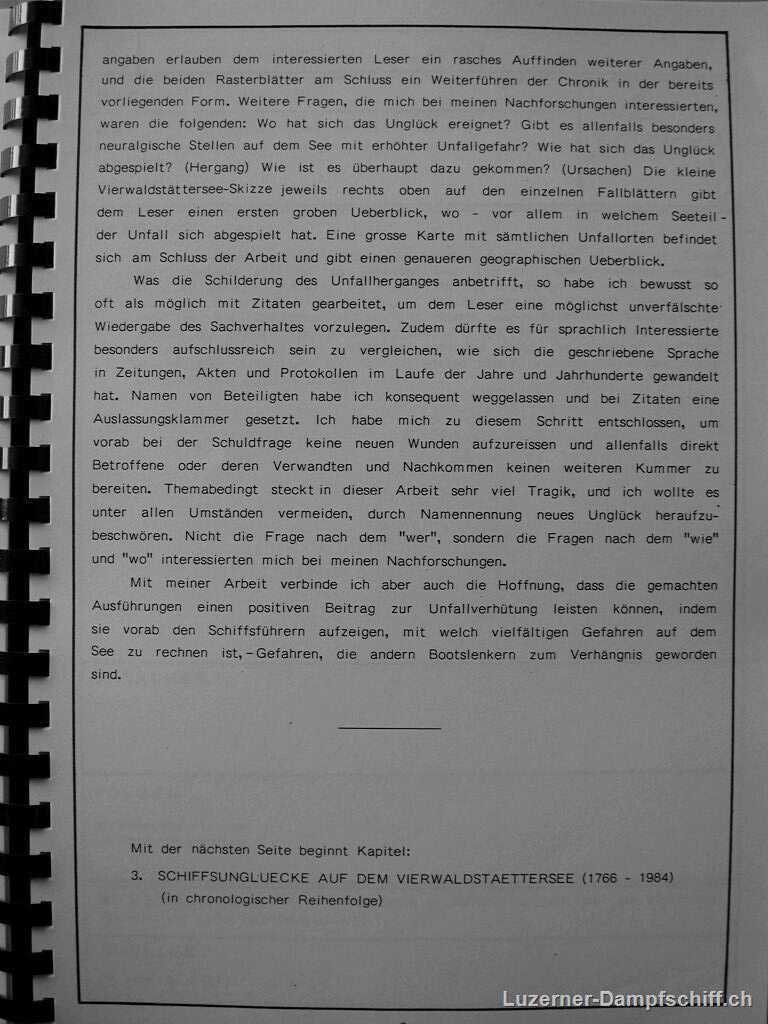 angaben erlauben dem interessierten Leser ein rasches Auffinden weiterer Angaben,
und die beiden Rasterblätter am Schluss ein Weiterführen der Chronik in der bereits
vorliegenden Form. Weitere Fragen, die mich bei meinen Nachforschungen interessierten,
waren die folgenden: Wo hat sich das Unglück ereignet? Gibt es allenfalls besonders
neuralgische Stellen auf dem See mit erhöhter Unfallgefahr? Wie hat sich das Unglück
abgespielt? (Hergang) Wie ist es überhaupt dazu gekommen? (Ursachen) Die kleine
Vierwaldstättersee-Skizze jeweils rechts oben auf den einzelnen Fallblättern gibt
dem Leser einen ersten groben Ueberblick, wo - vor allem in welchem Seeteil -
der Unfall sich abgespielt hat. Eine grosse Karte mit sämtlichen Unfallorten befindet
sich am Schluss der Arbeit und gibt einen genaueren geographischen Ueberblick.
Was die Schilderung des Unfallherganges anbetrifft, so habe ich bewusst so
oft als möglich mit Zitaten gearbeitet, um dem Leser eine möglichst unverfälschte
Wiedergabe des Sachverhaltes vorzulegen. Zudem dürfte es für sprachlich Interessierte
besonders aufschlussreich sein zu vergleichen, wie sich die geschriebene Sprache
in Zeitungen, Akten und Protokollen im Laufe der Jahre und Jahrhunderte gewandelt
hat. Namen von Beteiligten habe ich konsequent weggelassen und bei Zitaten eine
Auslassungsklammer gesetzt. Ich habe mich zu diesem Schritt entschlossen, um
vorab bei der Schuldfrage keine neuen Wunden aufzureissen und allenfalls direkt
Betroffene oder deren Verwandten und Nachkommen keinen weiteren Kummer zu
bereiten. Themabedingt steckt in dieser Arbeit sehr viel Tragik, und ich wollte es
unter allen Umständen vermeiden, durch Namennennung neues Unglück heraufzu-
beschwören. Nicht die Frage nach dem "wer", sondern die Fragen nach dem "wie"
und "wo" interessierten mich bei meinen Nachforschungen.
Mit meiner Arbeit verbinde ich aber auch die Hoffnung, dass die gemachten
Ausführungen einen positiven Beitrag zur Unfallverhütung leisten können, indem
sie vorab den Schiffsführern aufzeigen, mit welch vielfältigen Gefahren auf dem
See zu rechnen ist, - Gefahren, die andern Bootslenkern zum Verhängnis geworden
sind.
Mit der nächsten Seite beginnt Kapitel:
3. SCHIFFSUNGLUECKE AUF DEM VIERWALDSTAETTERSEE (1766 - 1984)
(in chronologischer Reihenfolge)
Luzerner-Dampfschiff.ch